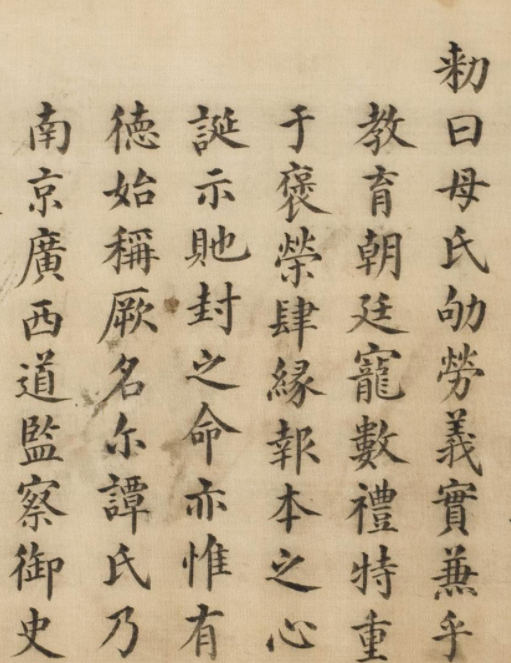 勑曰母氏劬勞義實兼乎
教育朝廷寵數禮特重
于褒榮肆緣報本之心
誕示貤封之命亦惟有
徳始稱厥名尔譚氏乃
南京廣西道監察御史